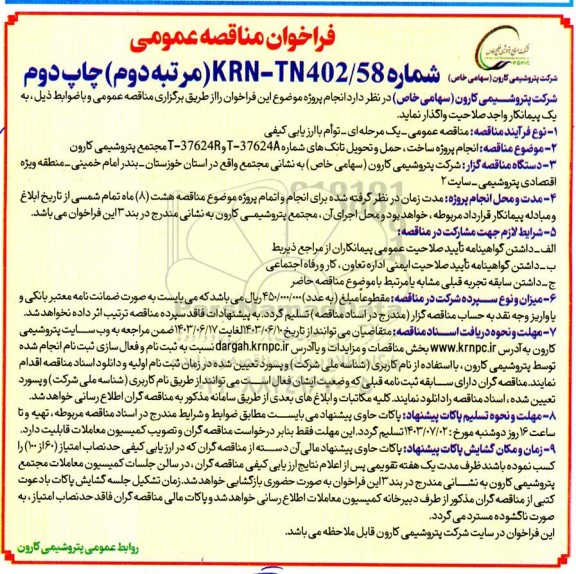 فراخوان مناقصه عمومی
شرکت پتروشیمی کارون (سهامی خاص)
شماره KRN-TN402/58 (مرتبه دوم) چاپ دوم
شرکت پتروشیمی کارون (سهامی خاص) در نظر دارد انجام پروژه موضوع این فراخوان را از طریق برگزاری مناقصه عمومی و با ضوابط ذیل، به
یک پیمانکار واجد صلاحیت واگذار نماید.
۱- نوع فرآیند مناقصه: مناقصه عمومی - یک مرحله ای - توأم با ارزیابی کیفی
۲- موضوع مناقصه: انجام پروژه ساخت، حمل و تحویل تانک های شماره T-37624A و T-37624R مجتمع پتروشیمی کارون
۳- دستگاه مناقصه گزار: شرکت پتروشیمی کارون (سهامی خاص) به نشانی مجتمع واقع در استان خوزستان - بندر امام خمینی - منطقه ویژه
اقتصادی پتروشیمی - سایت ۲
۴- مدت و محل انجام پروژه: مدت زمان در نظر گرفته شده برای انجام و اتمام پروژه موضوع مناقصه هشت (۸) ماه تمام شمسی از تاریخ ابلاغ
و مبادله پیمانکار قرارداد مربوطه، خواهد بود و محل اجرای آن، مجتمع پتروشیمی کارون به نشانی مندرج در بند ۳ این فراخوان می باشد.
۵- شرایط لازم جهت مشارکت در مناقصه:
الف - داشتن گواهینامه تأیید صلاحیت عمومی پیمانکاران از مراجع ذیربط
ب - داشتن گواهینامه تأیید صلاحیت ایمنی اداره تعاون، کار و رفاه اجتماعی
ج - داشتن سابقه تجربه قبلی مشابه یا مرتبط با موضوع مناقصه حاضر
۶- میزان و نوع سپرده شرکت در مناقصه: مقطوعا مبلغ (به عدد) ۴۵۰/۰۰۰/۰۰۰ ریال می باشد که می بایست به صورت ضمانت نامه معتبر بانکی و
یا واریز وجه نقد به حساب مناقصه گزار (مندرج در اسناد مناقصه) تسلیم گردد. به پیشنهادات فاقد سپرده مناقصه ترتیب اثر داده نخواهد شد.
۷- مهلت و نحوه دریافت اسناد مناقصه: متقاضیان می توانند از تاریخ ۱۴۰۳/۰۶/۱۰ لغایت ۱۴۰۳/۰۶/۱۷ ضمن مراجعه به وب سایت پتروشیمی
کارون به آدرس www.krnpc.ir بخش مناقصات و مزایدات و یا آدرس dargah.krnpc.ir نسبت به ثبت نام و فعال سازی ثبت نام انجام شده
توسط پتروشیمی کارون، با استفاده از نام کاربری (شناسه ملی شرکت) و پسورد تعیین شده در زمان ثبت نام اولیه و دانلود اسناد مناقصه اقدام
نمایند. مناقصه گران دارای سابقه ثبت نامه قبلی که وضعیت ایشان فعال است می توانند از طریق نام کاربری (شناسه ملی شرکت) و پسورد
تعیین شده، اسناد مناقصه را دانلود نمایند. کلیه مکاتبات و ابلاغ های بعدی از طریق سامانه مذکور به مناقصه گران اطلاع رسانی خواهد شد.
۸- مهلت و نحوه تسلیم پاکات پیشنهاد: پاکات حاوی پیشنهاد می بایست مطابق ضوابط و شرایط مندرج در اسناد مناقصه مربوطه، تهیه و تا
ساعت ۱۶ روز دوشنبه مورخ: ۱۴۰۳/۰۷/۰۲ تسلیم گردد. این مهلت فقط بنا بر درخواست مناقصه گران و تصویب کمیسیون معاملات قابلیت دارد.
۹- زمان و مکان گشایش پاکات پیشنهاد: پاکات حاوی پیشنهاد مالی آن دسته از مناقصه گران که در ارزیابی کیفی حد نصاب امتیاز (۶۰ از ۱۰۰) را
کسب نموده باشند ظرف مدت یک هفته تقویمی پس از اعلام نتایج ارزیابی کیفی مناقصه گران، در سالن جلسات کمیسیون معاملات مجتمع
پتروشیمی کارون به نشانی مندرج در بند ۳ این فراخوان به صورت حضوری بازگشایی خواهد شد. زمان تشکیل جلسه گشایش پاکات با دعوت
کتبی از مناقصه گران مذکور از طرف دبیرخانه کمیسیون معاملات اطلاع رسانی خواهد شد و پاکات مالی مناقصه گران فاقد حد نصاب امتیاز، به
صورت ناگشوده مسترد می گردد.
این فراخوان در سایت شرکت پتروشیمی کارون قابل ملاحظه می باشد.
روابط عمومی پتروشیمی کارون